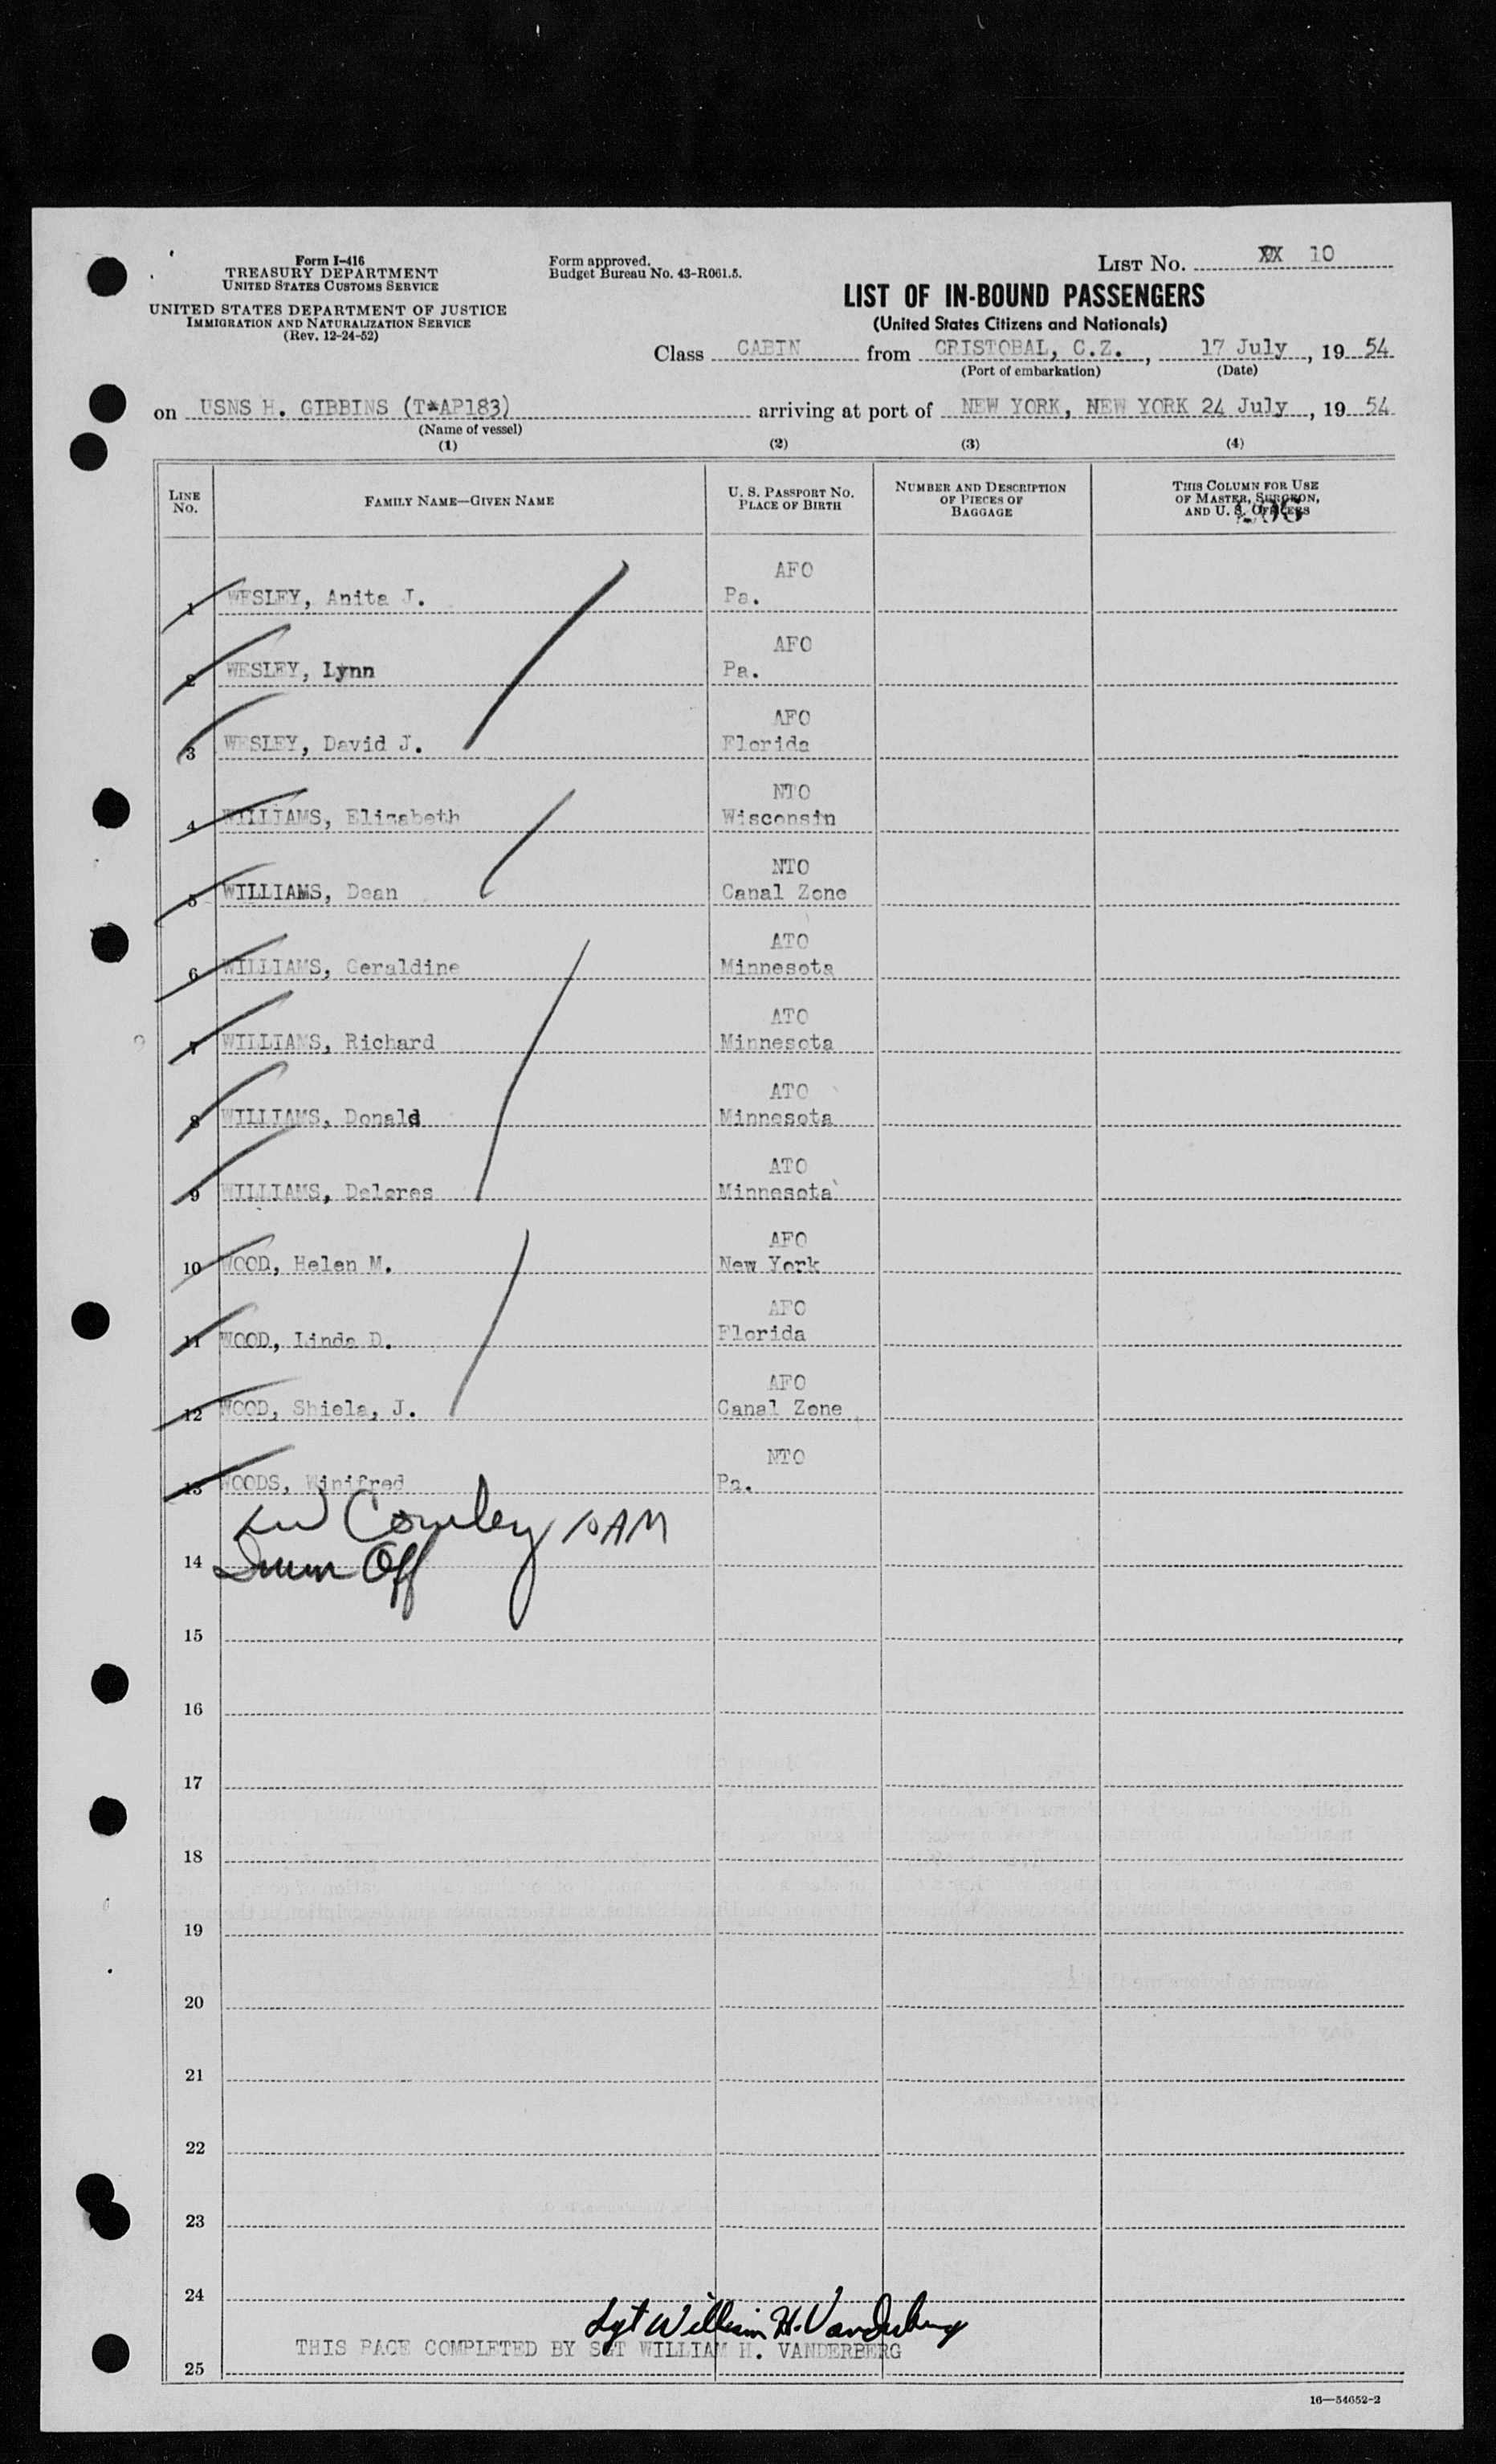 Form I-416
TREASURY DEPARTMENT
UNITED STATES CUSTOMS SERVICE
UNITED STATES DEPARTMENT OF JUSTICE
IMMIGRATION AND NATURALIZATION SERVICE
(Rev. 12-24-52)
Form approved.
Budget Bureau No. 43-R061.5.
LIST NO. XX 10
LIST OF IN-BOUND PASSENGERS
(United States Citizens and Nationals)
Class CABIN from CRISTOBAL, C.Z., 17 July, 19 54
(Port of embarkation) (Date)
on USNS H. GIBBINS (T*AP183) arriving at port of NEW YORK, NEW YORK 24 July, 19 54
(Name of vessel)
(1) (2) (3) (4)
LINE NO. FAMILY NAME—GIVEN NAME U. S. PASSPORT NO. PLACE OF BIRTH NUMBER AND DESCRIPTION OF PIECES OF BAGGAGE THIS COLUMN FOR USE OF MASTER, SURGEON, AND U. S. OFFICERS
AFO
1 WESLEY, Anita J. Pa.
AFO
2 WESLEY, Lynn Pa.
AFO
3 WESLEY, David J. Florida
NTO
4 WILLIAMS, Elizabeth Wisconsin
NTO
5 WILLIAMS, Dean Canal Zone
ATO
6 WILLIAMS, Geraldine Minnesota
ATO
7 WILLIAMS, Richard Minnesota
ATO
8 WILLIAMS, Donald Minnesota
ATO
9 WILLIAMS, Delores Minnesota
AFO
10 WOOD, Helen M. New York
AFO
11 WOOD, Linda D. Florida
AFO
12 WOOD, Shiela, J. Canal Zone
NTO
13 WOODS, Winifred Pa.
Cowley 10 AM
14 Imm Off
15
16
17
18
19
20
21
22
23
24
Sgt William H. Vanderberg
THIS PAGE COMPLETED BY SGT WILLIAM H. VANDERBERG
25
16—54652-2